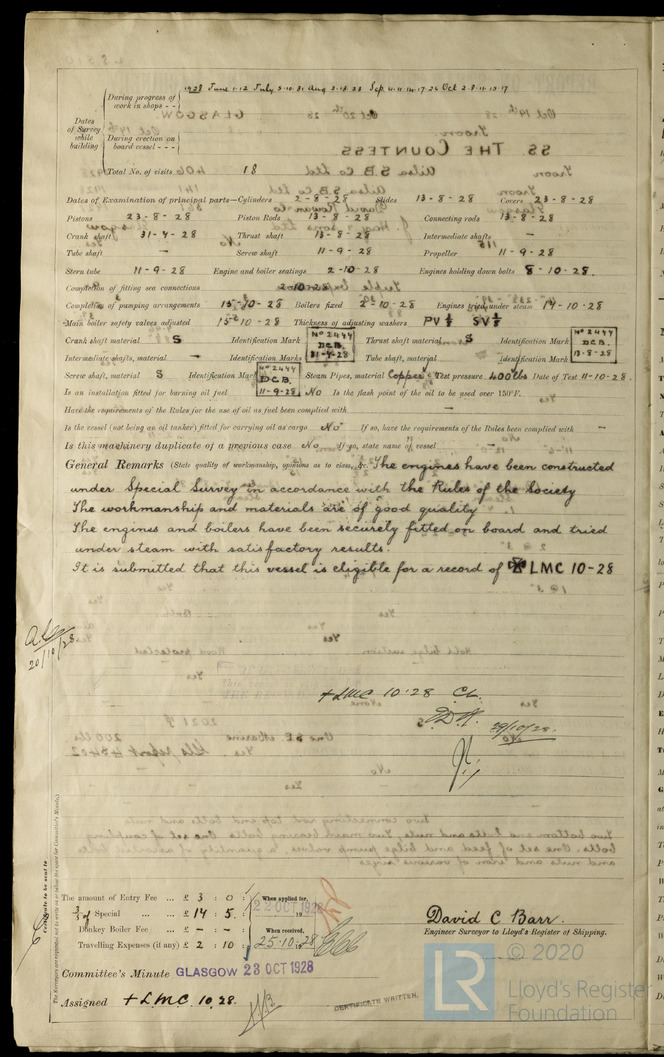 During progress of work in shops - - 1928 June 1-12 July 5-10-31 Aug 2-13-23 Sep 4-11-14-17-26 Oct 2-8-11-15-17
Dates of Survey while building
During erection on board vessel - - -
Total No. of visits 18
Dates of Examination of principal parts—Cylinders 2-8-28 Slides 13-8-28 Covers 23-8-28
Pistons 23-8-28 Piston Rods 13-8-28 Connecting rods 13-8-28
Crank shaft 31-4-28 Thrust shaft 13-8-28 Intermediate shafts —
Tube shaft — Screw shaft 11-9-28 Propeller 11-9-28
Stern tube 11-9-28 Engine and boiler seatings 2-10-28 Engines holding down bolts 8-10-28.
Completion of fitting sea connections 2-10-28
Completion of pumping arrangements 15-10-28 Boilers fixed 2-10-28 Engines tried under steam 17-10-28
Main boiler safety valves adjusted 15-10-28 Thickness of adjusting washers PV SV
Crank shaft material S Identification Mark No 2444 D.C.B. 31-4-28 Thrust shaft material S Identification Mark No 2444 D.C.B. 13-8-28
Intermediate shafts, material — Identification Marks — Tube shaft, material — Identification Mark —
Screw shaft, material S Identification Mark No 2444 D.C.B. 11-9-28 Steam Pipes, material Copper Test pressure 400 lbs Date of Test 11-10-28.
Is an installation fitted for burning oil fuel No Is the flash point of the oil to be used over 150°F. —
Have the requirements of the Rules for the use of oil as fuel been complied with —
Is the vessel (not being an oil tanker) fitted for carrying oil as cargo No If so, have the requirements of the Rules been complied with —
Is this machinery duplicate of a previous case No If so, state name of vessel —
General Remarks (State quality of workmanship, opinions as to class, &c. The engines have been constructed
under Special Survey in accordance with the Rules of the Society
The workmanship and materials are of good quality
The engines and boilers have been securely fitted on board and tried
under steam with satisfactory results.
It is submitted that this vessel is eligible for a record of ✠ LMC 10-28
20/10/28
+ LMC 10.28 CL.
29/10/28.
Certificate to be sent to
The amount of Entry Fee ... £ 3 : 0 :
Special ... ... £ 14 : 5 :
Donkey Boiler Fee ... £ — : — :
Travelling Expenses (if any) £ 2 : 10 :
When applied for,
22 OCT 1928
When received,
25.10.28
David C Barr.
Engineer Surveyor to Lloyd's Register of Shipping.
Committee's Minute GLASGOW 23 OCT 1928
Assigned + LMC. 10.28.
CERTIFICATE WRITTEN.
© 2020
LR
Lloyd's Register
Foundation